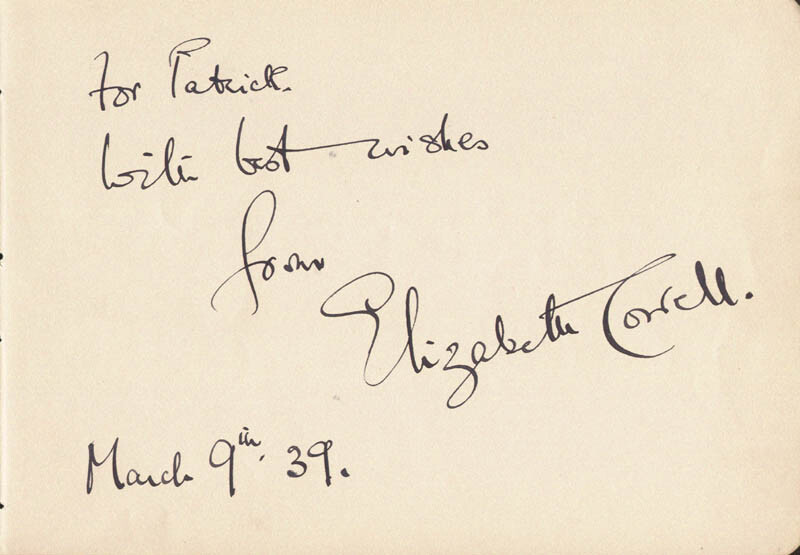 For Patrick.
With best wishes
from
Elizabeth Cowell.
March 9th. 39.